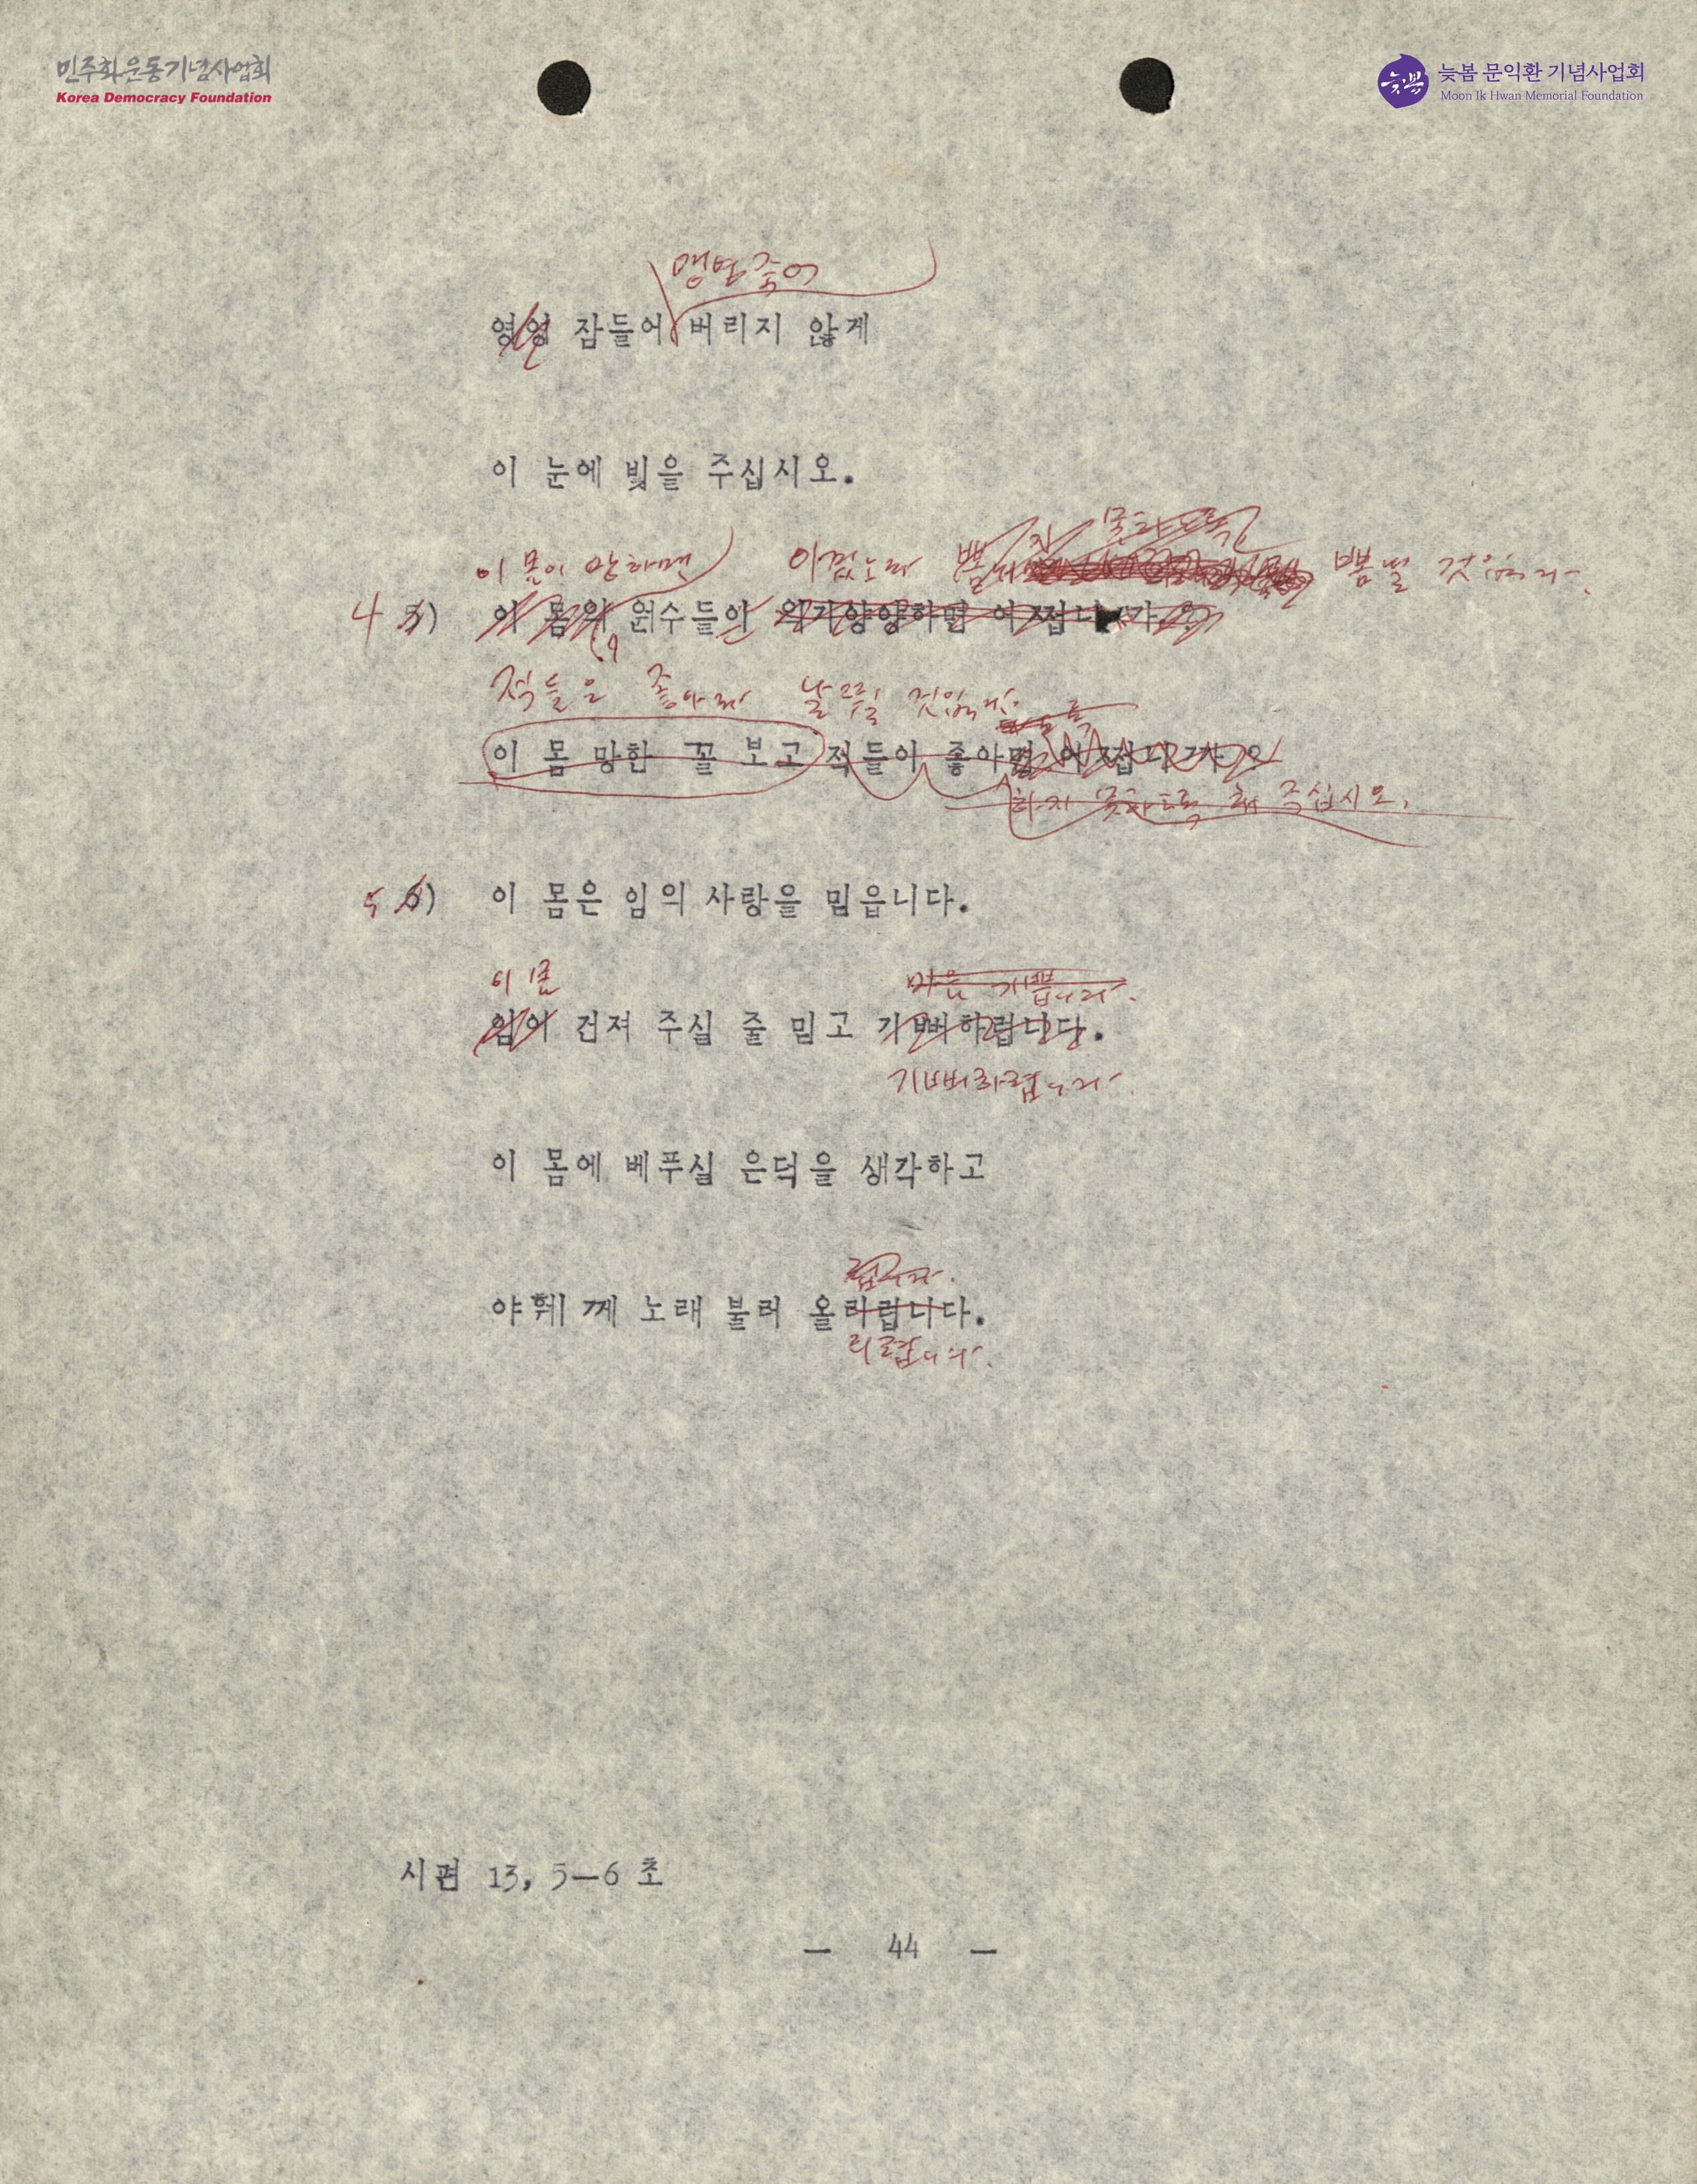 민주화운동기념사업회
Korea Democracy Foundation
늦봄 문익환 기념사업회
Moon Ik Hwan Memorial Foundation
영영 잠들어 버리지 않게
이 눈에 빛을 주십시오.
이 몸이 망하면 이겼노라 뽐낼 것입니다.
4 5) 이 몸의 원수들이 의기양양하면 어쩝니까?
적들은 좋아라 날뛸 것입니다.
이 몸 망한 꼴 보고 적들이 좋아하면 어쩝니까?
하지 못하도록 해 주십시오.
5 6) 이 몸은 임의 사랑을 믿읍니다.
이 몸 마음 기쁩니다.
임이 건져 주실 줄 믿고 기뻐하렵니다.
기뻐하렵니다.
이 몸에 베푸실 은덕을 생각하고
렵니다.
야훼께 노래 불러 올리렵니다.
리렵니다.
시편 13, 5—6 초
— 44 —